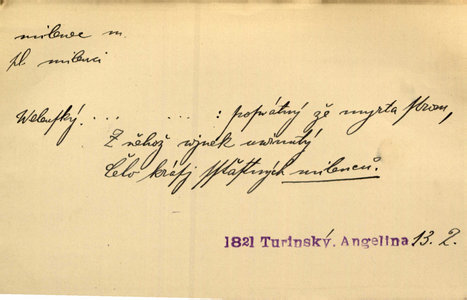 milenec m.
pl. milenci
Welenský. . . . . . . : poswátný že myrta strom,
Z něhož wínek uwinutý
Čelo krásj sstiastných milenců.
1821 Turinský. Angelina 13. 2.